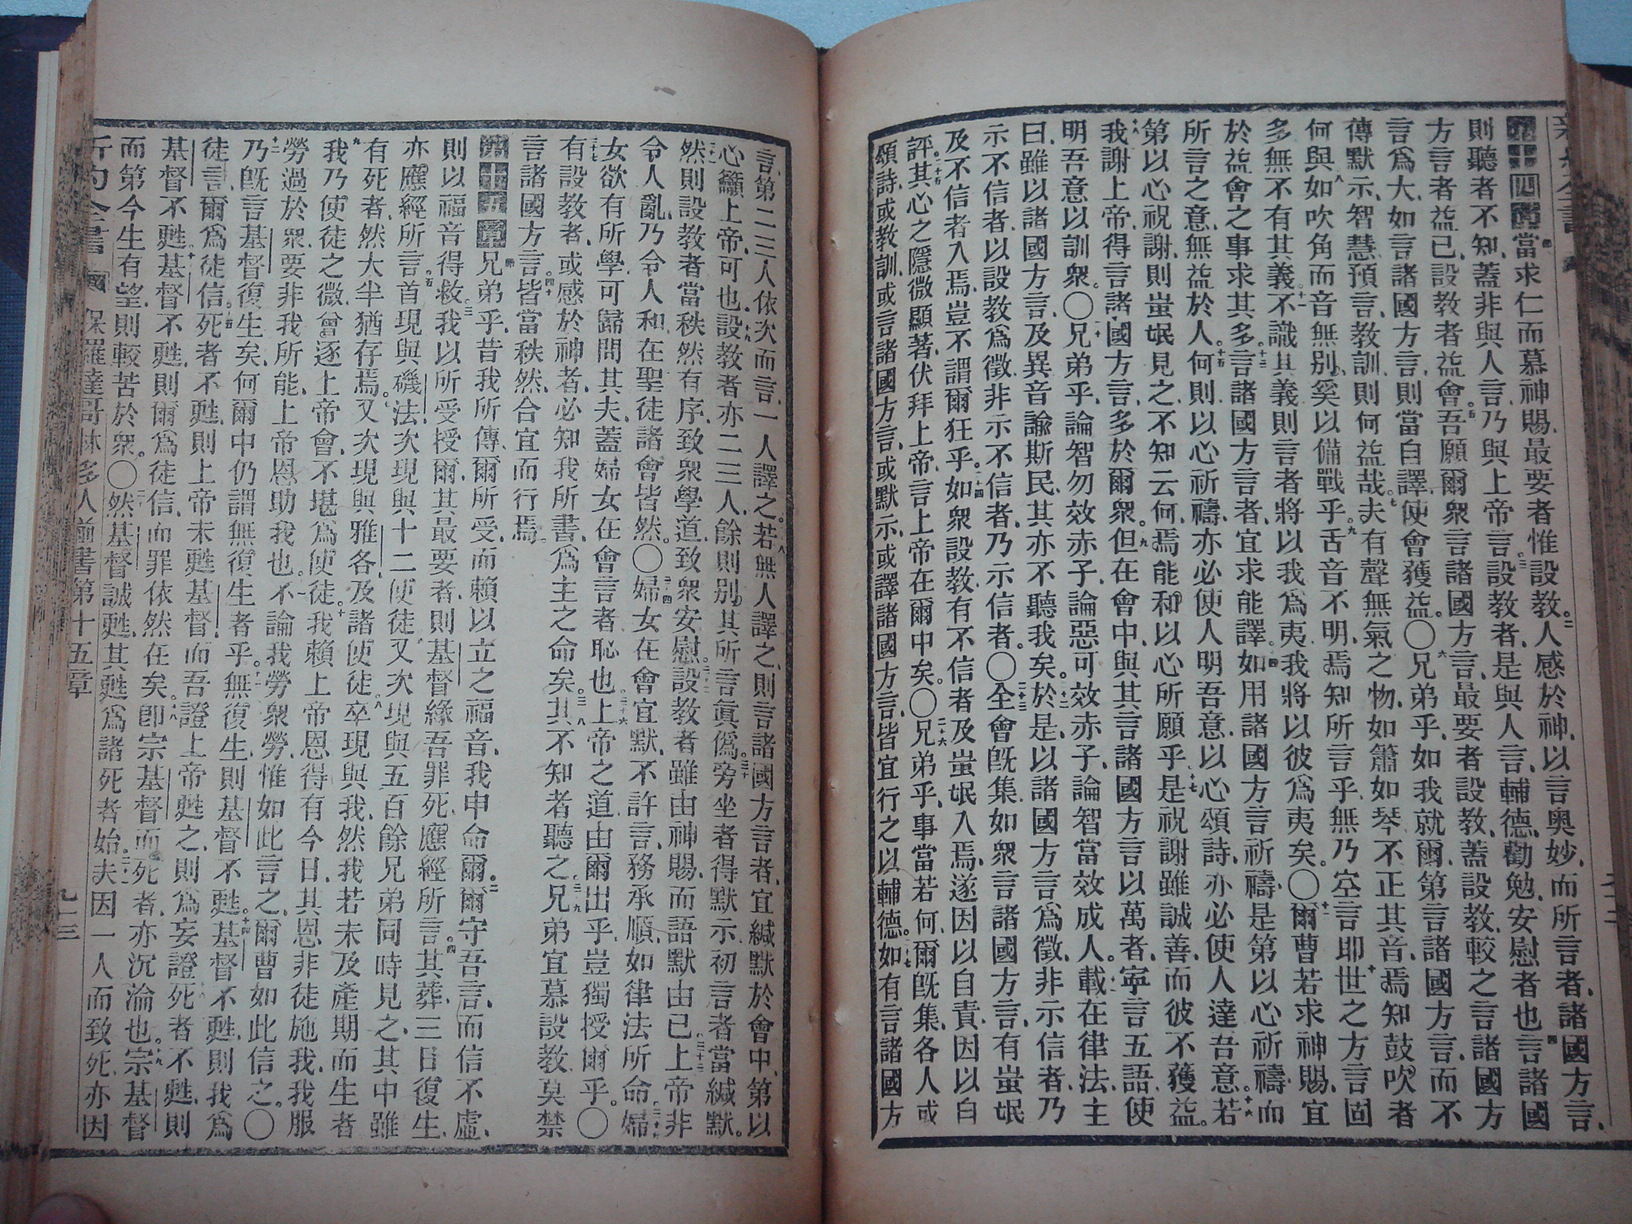 第十四章當求仁而慕神賜最要者惟設教二人感於神以言奥妙而所言者諸國方言
則聽者不知蓋非與人言乃與上帝言三設教者是與人言輔德勸勉安慰者也四言諸國
方言者益已設教者益會五吾願爾衆言諸國方言最要者設教蓋設教較之言諸國方
言爲大如言諸國方言則當自譯使會獲益〇六兄弟乎如我就爾第言諸國方言而不
傳默示智慧預言教訓則何益哉七夫有聲無氣之物如簫如琴不正其音焉知鼓吹者
何與八如吹角而音無別奚以備戰乎九舌音不明焉知所言乎無乃空言耶十世之方言固
多無不有其義十一不識其義則言者將以我爲夷我將以彼爲夷矣〇十二爾曹若求神賜宜
於益會之事求其多十三言諸國方言者宜求能譯十四如用諸國方言祈禱是第以心祈禱而
所言之意無益於人十五何則以心祈禱亦必使人明吾意以心頌詩亦必使人達吾意十六若
第以心祝謝則蚩氓見之不知云何焉能和以心所願乎十七是祝謝雖誠善而彼不獲益
十八我謝上帝得言諸國方言多於爾衆十九但在會中與其言諸國方言以萬者寧言五語使
明吾意以訓衆〇二十兄弟乎論智勿效赤子論惡可效赤子論智當效成人二一載在律法主
曰雖以諸國方言及異音諭斯民其亦不聽我矣二二於是以諸國方言爲徵非示信者乃
示不信者以設教爲徵非示不信者乃示信者〇二三全會旣集如衆言諸國方言有蚩氓
及不信者入焉豈不謂爾狂乎二四如衆設教有不信者及蚩氓入焉遂因以自責因以自
評二五其心之隱微顯著伏拜上帝言上帝在爾中矣〇二六兄弟乎事當若何爾旣集各人或
頌詩或教訓或言諸國方言或默示或譯諸國方言皆宜行之以輔德二七如有言諸國方
言第二三人依次而言一人譯之二八若無人譯之則言諸國方言者宜緘默於會中第以
心籲上帝可也二九設教者亦二三人餘則別其所言眞僞三十旁坐者得默示初言者當緘默
三一然則設教者當秩然有序致衆學道致衆安慰三二設教者雖由神賜而語默由己三三上帝非
令人亂乃令人和在聖徒諸會皆然〇三四婦女在會宜默不許言務承順如律法所命三五婦
女欲有所學可歸問其夫蓋婦女在會言者恥也三六上帝之道由爾出乎豈獨授爾乎〇
三七有設教者或感於神者必知我所書爲主之命矣三八其不知者聽之三九兄弟宜慕設教莫禁
言諸國方言四十皆當秩然合宜而行焉
第十五章兄弟乎昔我所傳爾所受而賴以立之福音我申命爾二爾守吾言而信不虛
則以福音得救三我以所受授爾其最要者則基督緣吾罪死應經所言四其葬三日復生
亦應經所言五首現與磯法次現與十二使徒六又次現與五百餘兄弟同時見之其中雖
有死者然大半猶存焉七又次現與雅各及諸使徒八卒現與我然我若未及產期而生者
九我乃使徒之微曾逐上帝會不堪爲使徒十我賴上帝恩得有今日其恩非徒施我我服
勞過於衆要非我所能上帝恩助我也十一不論我勞衆勞惟如此言之爾曹如此信之〇
十二乃旣言基督復生矣何爾中仍謂無復生者乎十三無復生則基督不甦十四基督不甦則我爲
徒言爾爲徒信十五死者不甦則上帝未甦基督而吾證上帝甦之則爲妄證十六死者不甦則
基督不甦十七基督不甦則爾爲徒信而罪依然在矣十八卽宗基督而死者亦沉淪也十九宗基督
而第今生有望則較苦於衆〇二十然基督誠甦其甦爲諸死者始二一夫因一人而致死亦因
新約全書 保羅達哥林多人前書第十五章 九十三